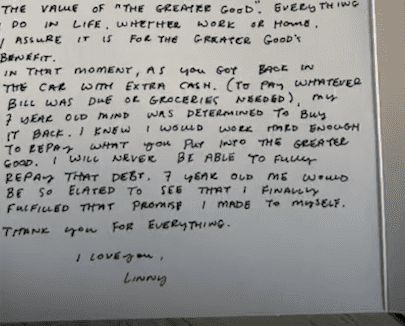 THE VALUE OF "THE GREATER GOOD". EVERYTHING
I DO IN LIFE, WHETHER WORK OR HOME,
I ASSURE IT IS FOR THE GREATER GOOD'S
BENEFIT.
IN THAT MOMENT, AS YOU GOT BACK IN
THE CAR WITH EXTRA CASH. (TO PAY WHATEVER
BILL WAS DUE OR GROCERIES NEEDED), MY
7 YEAR OLD MIND WAS DETERMINED TO BUY
IT BACK. I KNEW I WOULD WORK HARD ENOUGH
TO REPAY WHAT YOU PUT INTO THE GREATER
GOOD. I WILL NEVER BE ABLE TO FULLY
REPAY THAT DEBT. 7 YEAR OLD ME WOULD
BE SO ELATED TO SEE THAT I FINALLY
FULFILLED THAT PROMISE I MADE TO MYSELF.
THANK YOU FOR EVERYTHING.
I LOVE YOU,
LINNY